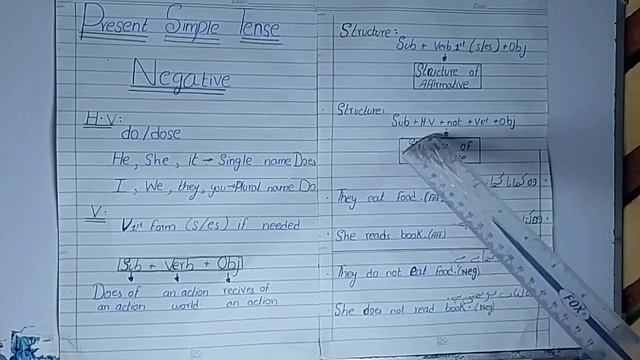 Present Simple Tense
Negative
H.V:
do/dose
He, She, it → Single name Does
I, We, they, you → Plural name Do
V:
V1st form (s/es) if needed
Sub + Verb + Obj
Does of an action recives of
an action world an action
Structure:
Sub + Verb 1st (s/es) + Obj
Structure of
Affirmative
Structure:
Sub + H.V + not + V1st + Obj
of
They eat food. (Aff)
She reads book. (Aff)
They do not eat food. (Neg)
She does not read book. (Neg)
FOX